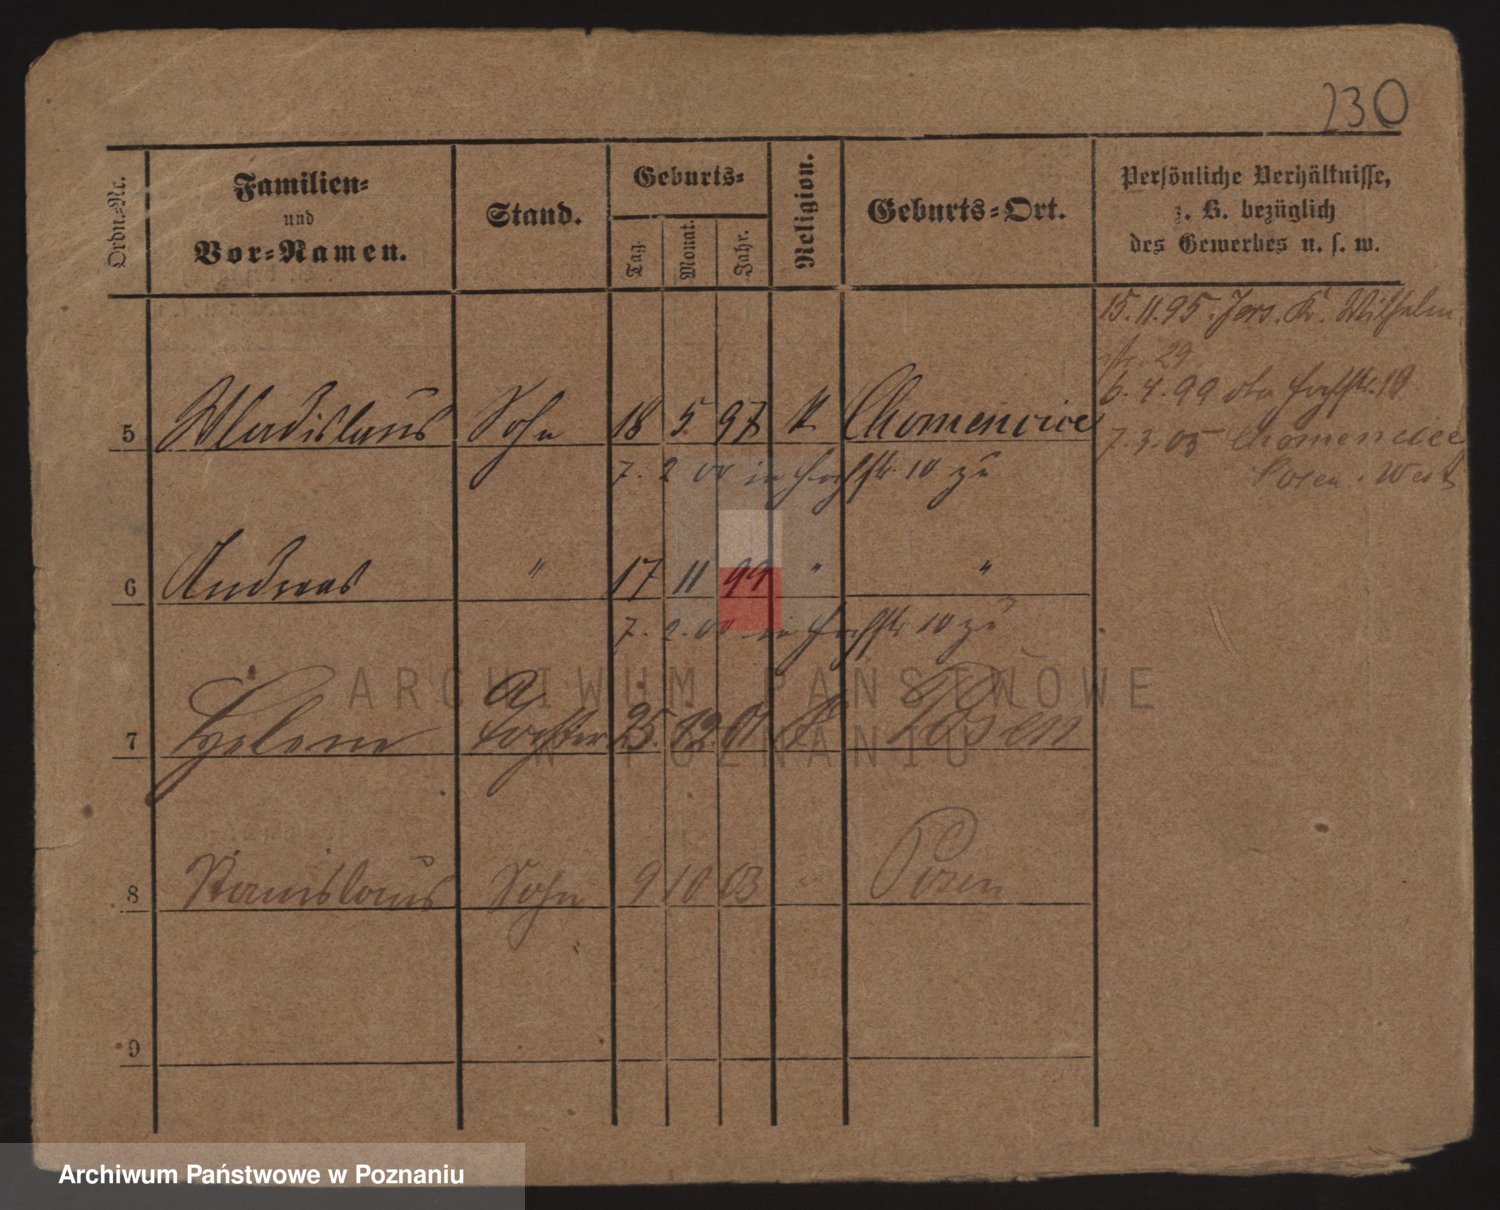 230
Ordn.=Nr.
Familien=
und
Vor=Namen.
Stand.
Geburts=
Tag.
Monat.
Jahr.
Religion.
Geburts=Ort.
Persönliche Verhältnisse,
z. B. bezüglich
des Gewerbes u. s. w.
15.11.95. Jers. K. Wilhelm
str. 29
6.4.99
5 Wladislaus Sohn 18 5 97 K Chomencice
7.3.05 Chomencice
Posen. West
7. 2 00 in 10 zu
6 Andreas " 17 11 99 " "
7. 2. 00 in 10 zu
7 Helene Tochter 25. 12. 01 K Posen
8 Stanislaus Sohn 9 10 03 " Posen
9
ARCHIWUM PAŃSTWOWE
W POZNANIU
Archiwum Państwowe w Poznaniu